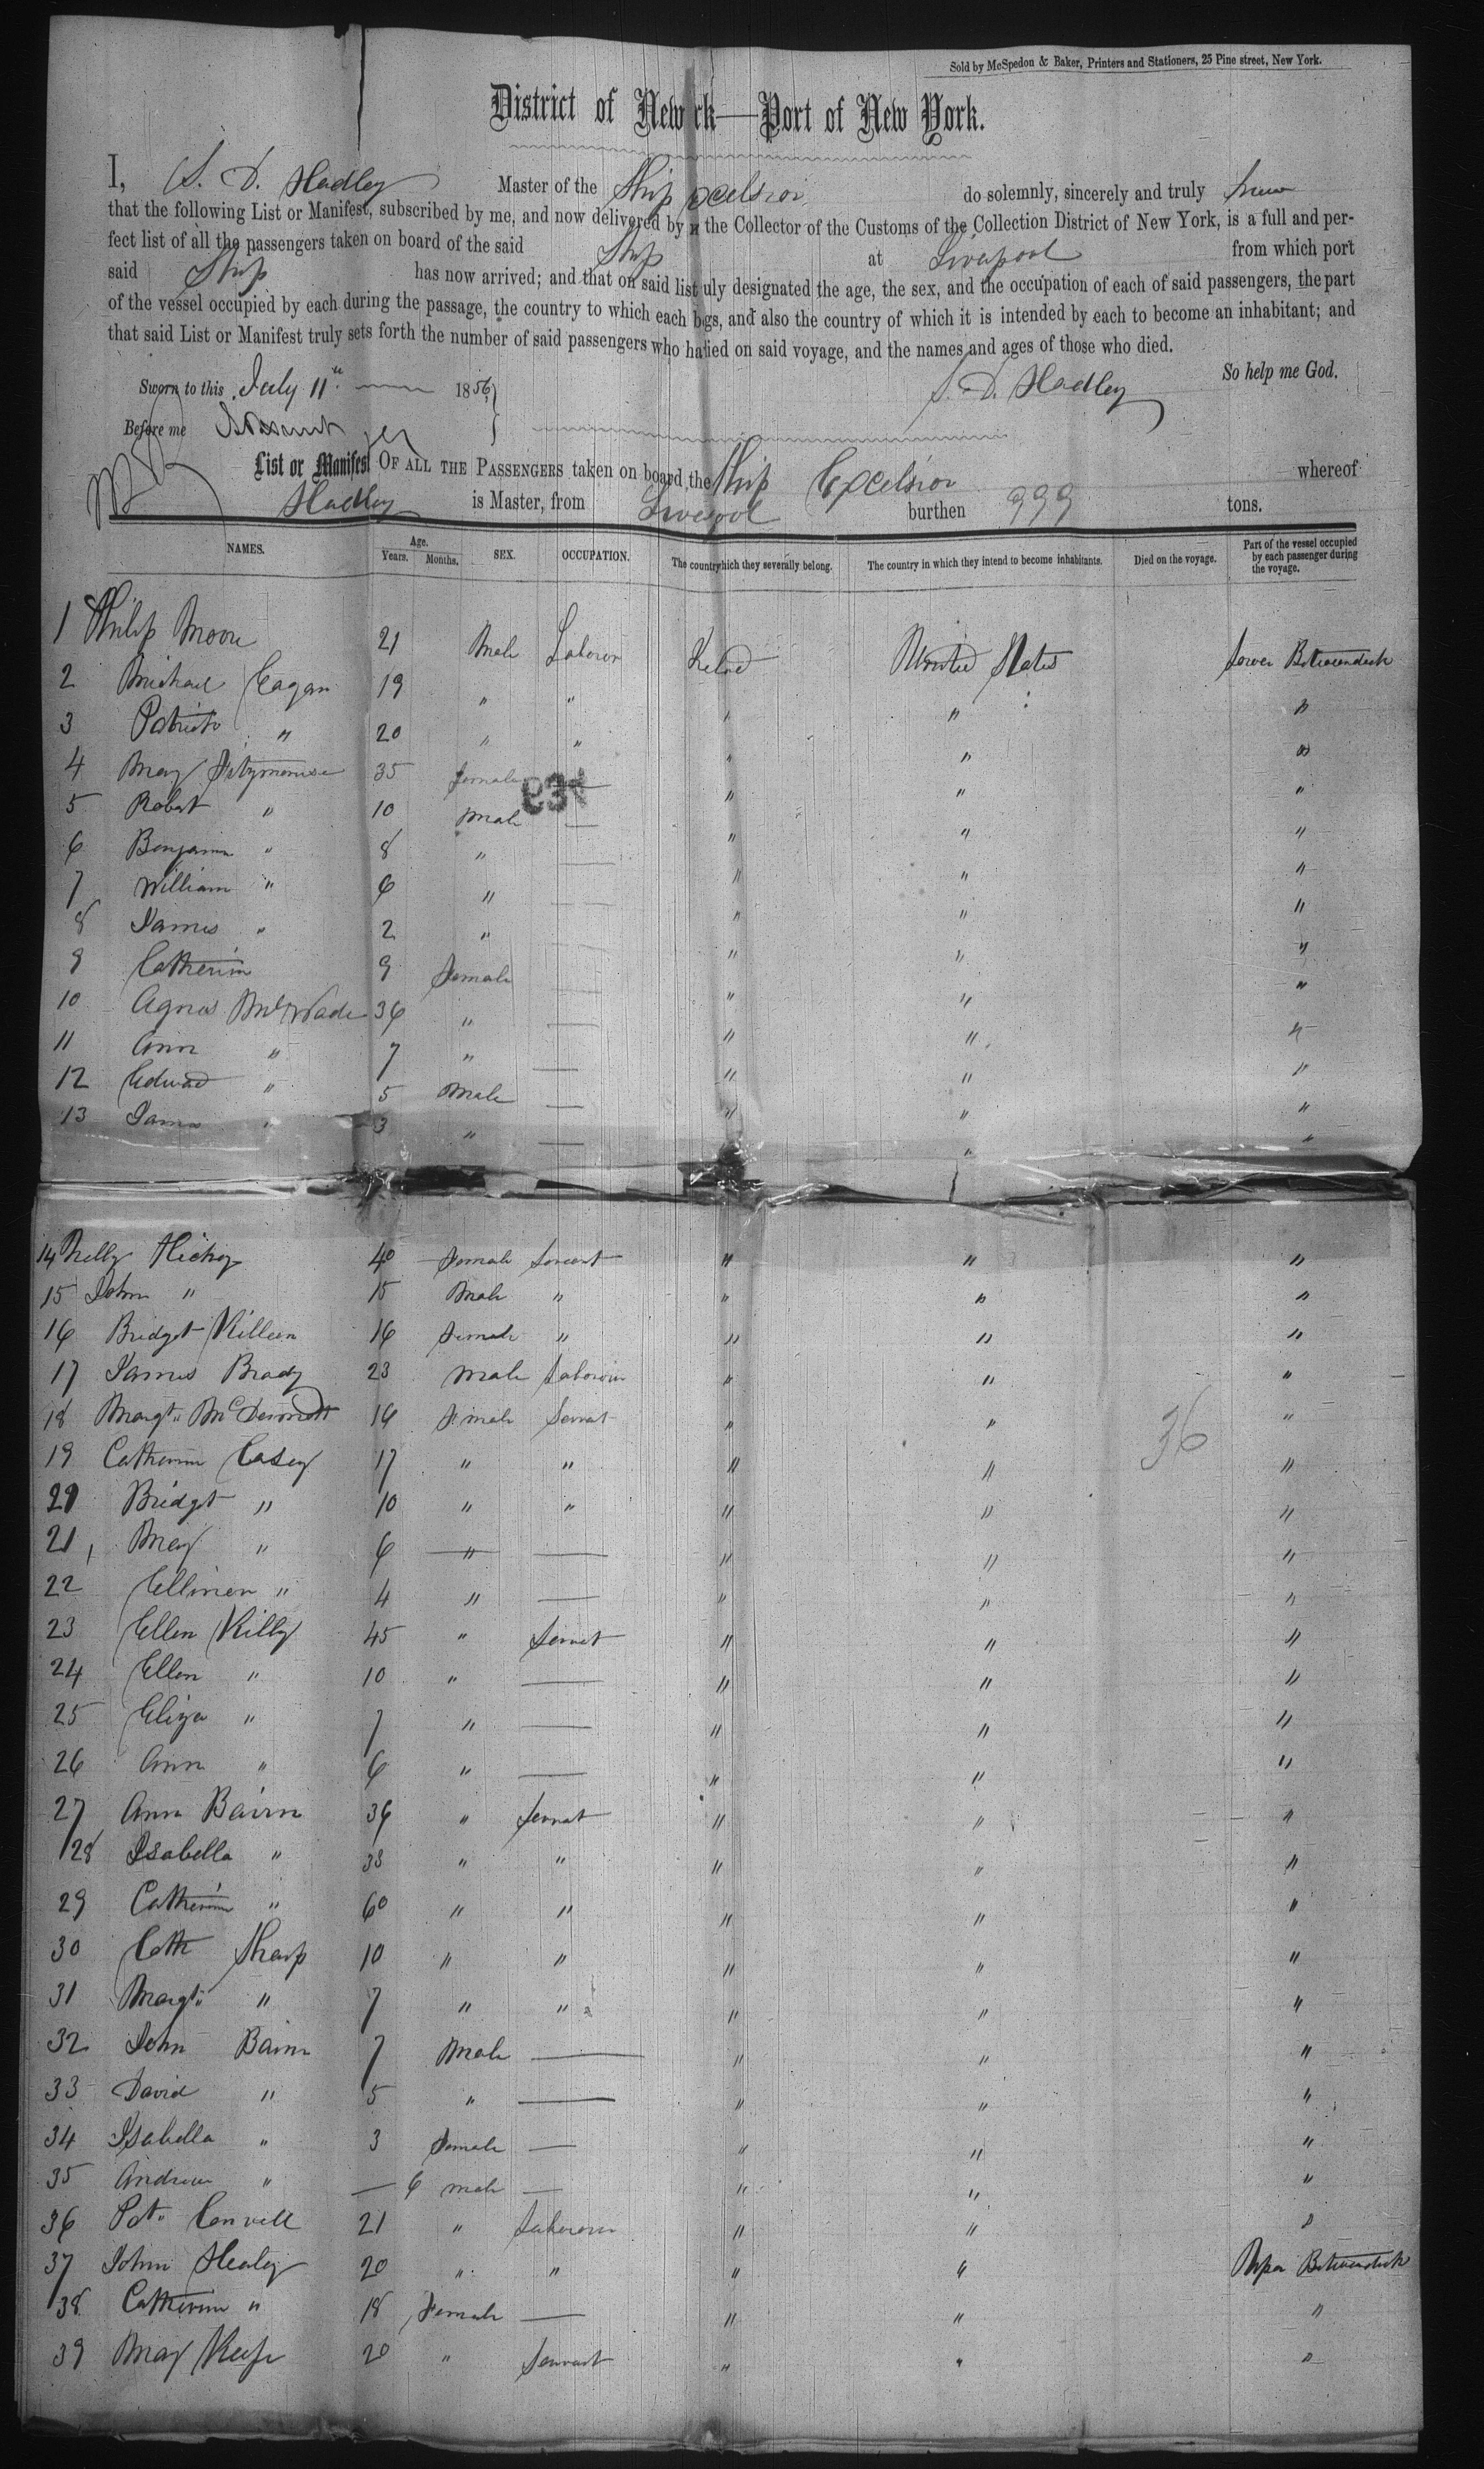 Sold by McSpedon & Baker, Printers and Stationers, 25 Pine street, New York.
District of New rk—Port of New York.
I, S. D. Hadley Master of the Ship xcelsior do solemnly, sincerely and truly swear
that the following List or Manifest, subscribed by me, and now delivered by the Collector of the Customs of the Collection District of New York, is a full and per-
fect list of all the passengers taken on board of the said Ship at Liverpool from which port
said Ship has now arrived; and that on said list uly designated the age, the sex, and the occupation of each of said passengers, the part
of the vessel occupied by each during the passage, the country to which each b gs, and also the country of which it is intended by each to become an inhabitant; and
that said List or Manifest truly sets forth the number of said passengers who ha ied on said voyage, and the names and ages of those who died.
So help me God.
S. D. Hadley
Sworn to this July 11th 1856
Before me
List or Manifest OF ALL THE PASSENGERS taken on board the Ship Excelsior whereof
Hadley is Master, from Liverpool burthen 999 tons.
NAMES. Age. Years. Months. SEX. OCCUPATION. The country hich they severally belong. The country in which they intend to become inhabitants. Died on the voyage. Part of the vessel occupied by each passenger during the voyage.
1 Philip Moore 21 Male Laborer Ireland United States Lower Betweendeck
2 Michael Eagan 19 " " " " "
3 Patrick " 20 " " " " "
4 Mary Fitzmorise 35 female — " " "
5 Robert " 10 Male — " " "
6 Benjamin " 8 " — " " "
7 William " 6 " — " " "
8 James " 2 " — " " "
9 Catherine 9 Female — " " "
10 Agnes McWade 36 " — " " "
11 Ann " 7 " — " " "
12 Edward " 5 Male — " " "
13 James " 3 " — " " "
14 Nelly Hickey 40 Female Servant " " "
15 John " 15 Male " " " "
16 Bridget Killeen 16 Female " " " "
17 James Brady 23 Male Laborer " " "
18 Margt. McDermott 16 Female Servant " " "
36
19 Catherine Casey 17 " " " " "
20 Bridget " 10 " " " " "
21 Mary " 6 " — " " "
22 Ellinor " 4 " — " " "
23 Ellen Killy 45 " Servant " " "
24 Ellen " 10 " — " " "
25 Eliza " 7 " — " " "
26 Ann " 6 " — " " "
27 Ann Bairn 36 " Servant " " "
28 Isabella " 33 " " " " "
29 Catherine " 60 " " " " "
30 Cath Sharp 10 " " " " "
31 Margt. " 7 " " " " "
32 John Bairn 7 Male — " " "
33 David " 5 " — " " "
34 Isabella " 3 Female — " " "
35 Andrew " — 6 male — " " "
36 Pat. Convell 21 " Laborer " " "
37 John Healey 20 " " " " Upper Betweendeck
38 Catherine " 18 Female — " " "
39 Mary Keefe 20 " Servant " " "